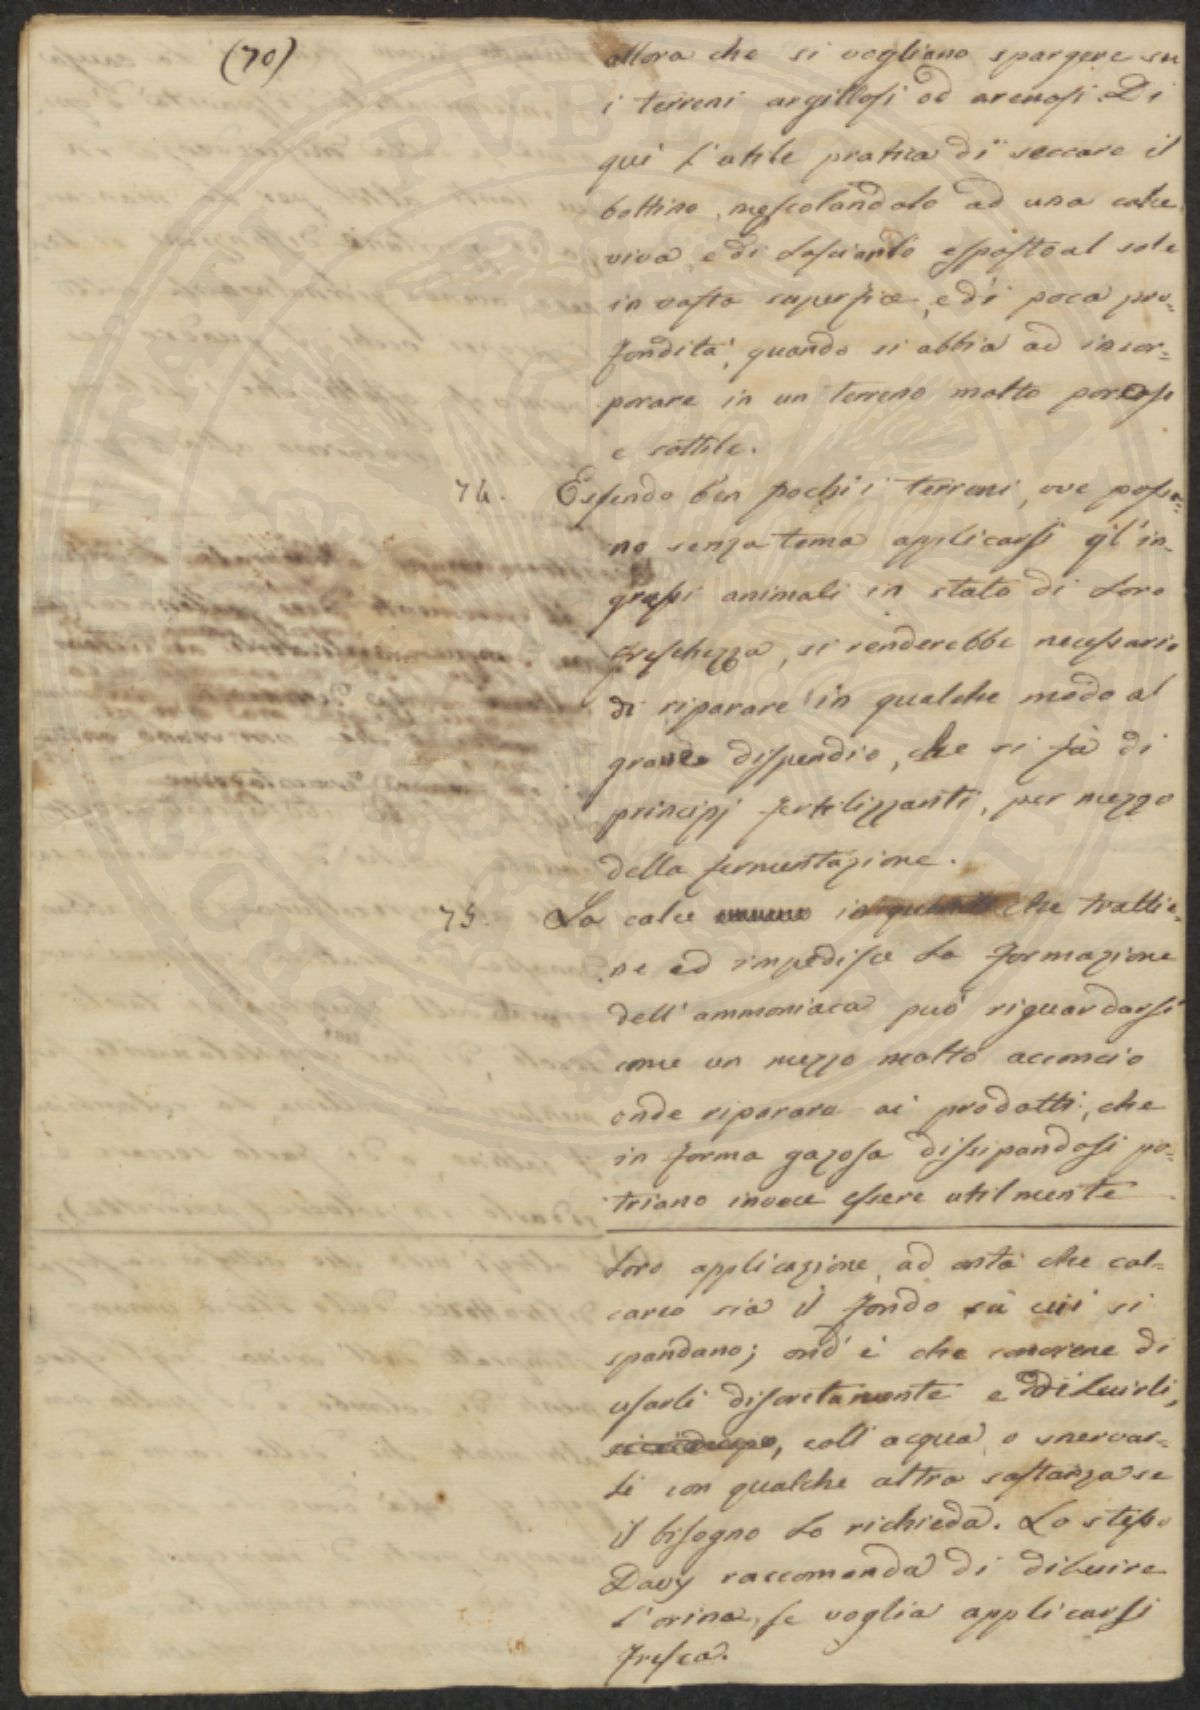 (70)
allora che si vogliano spargere su
i terreni argillosi od arenosi. Di
quì l'utile pratica di seccare il
bottino, mescolandolo ad una calce
viva, e di lasciarlo esposto al sole
in vasta superficie, e di poca pro=
fondità, quando si abbia ad incor=
porare in un terreno molto poroso
e sottile.
74. Essendo ben pochi i terreni, ove posso=
no senza tema applicarsi gl'in=
grassi animali in stato di loro
freschezza, si renderebbe necessario
di riparare in qualche modo al
grande dispendio, che si fà di
principj fertilizzanti, per mezzo
della fermentazione.
75. La calce in che trattie=
ne ed impedisce la formazione
dell'ammoniaca può riguardarsi
come un mezzo molto acconcio
onde riparare ai prodotti, che
in forma gazosa dissipandosi po=
triano invece essere utilmente
loro applicazione, ad onta che cal=
careo sia il fondo sù cui si
spandano; ond'è che conviene di
usarli discretamente e diluirli,
coll'acqua, o snervar=
li con qualche altra sostanza se
il bisogno lo richieda. Lo stesso
Davy raccomanda di diluire
l'orina, se voglia applicarsi
fresca.